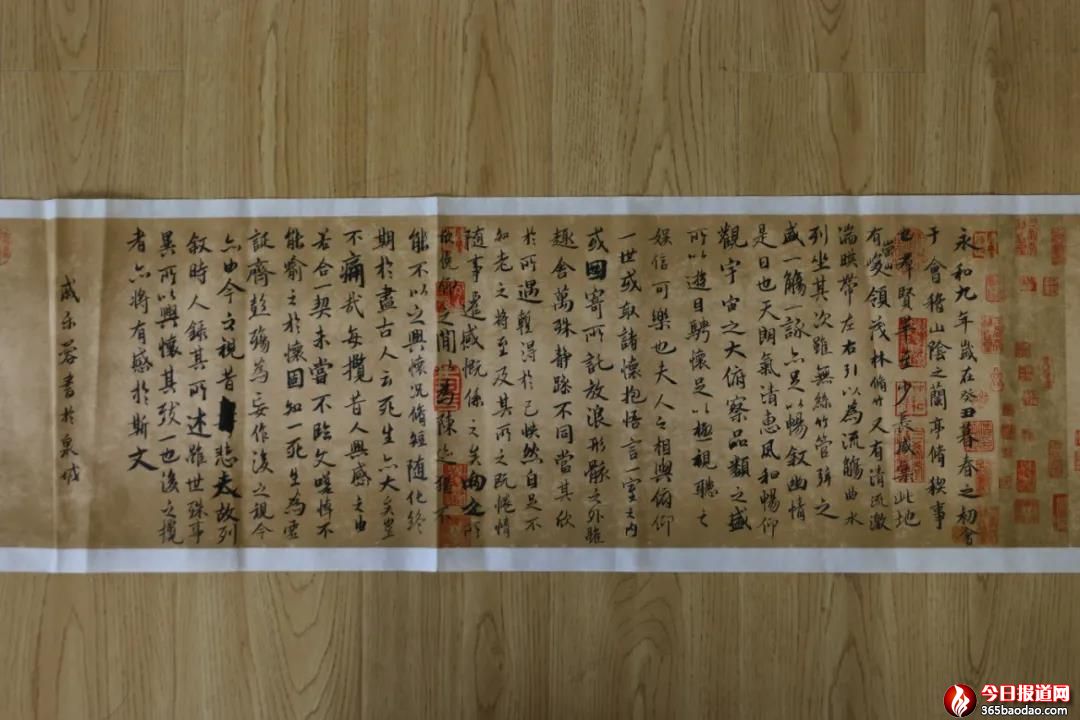 永和九年歲在癸丑暮春之初會
于會稽山陰之蘭亭脩稧事
也羣賢畢至少長咸集此地
有崇山峻領茂林脩竹又有清流激
湍暎帶左右引以為流觴曲水
列坐其次雖無絲竹管弦之
盛一觴一詠亦足以暢敘幽情
是日也天朗氣清惠風和暢仰
觀宇宙之大俯察品類之盛
所以遊目騁懷足以極視聽之
娛信可樂也夫人之相與俯仰
一世或取諸懷抱悟言一室之內
或因寄所託放浪形骸之外雖
趣舍萬殊靜躁不同當其欣
於所遇蹔得於己怏然自足不
知老之將至及其所之既惓情
隨事遷感慨係之矣向之所
欣俛仰之間以為陳迹猶不
能不以之興懷況脩短隨化終
期於盡古人云死生亦大矣豈
不痛哉每攬昔人興感之由
若合一契未嘗不臨文嗟悼不
能喻之於懷固知一死生為虛
誕齊彭殤為妄作後之視今
亦由今之視昔悲夫故列
敘時人錄其所述雖世殊事
異所以興懷其致一也後之攬
者亦將有感於斯文
書於泉城
今日报道网
365baodao.com